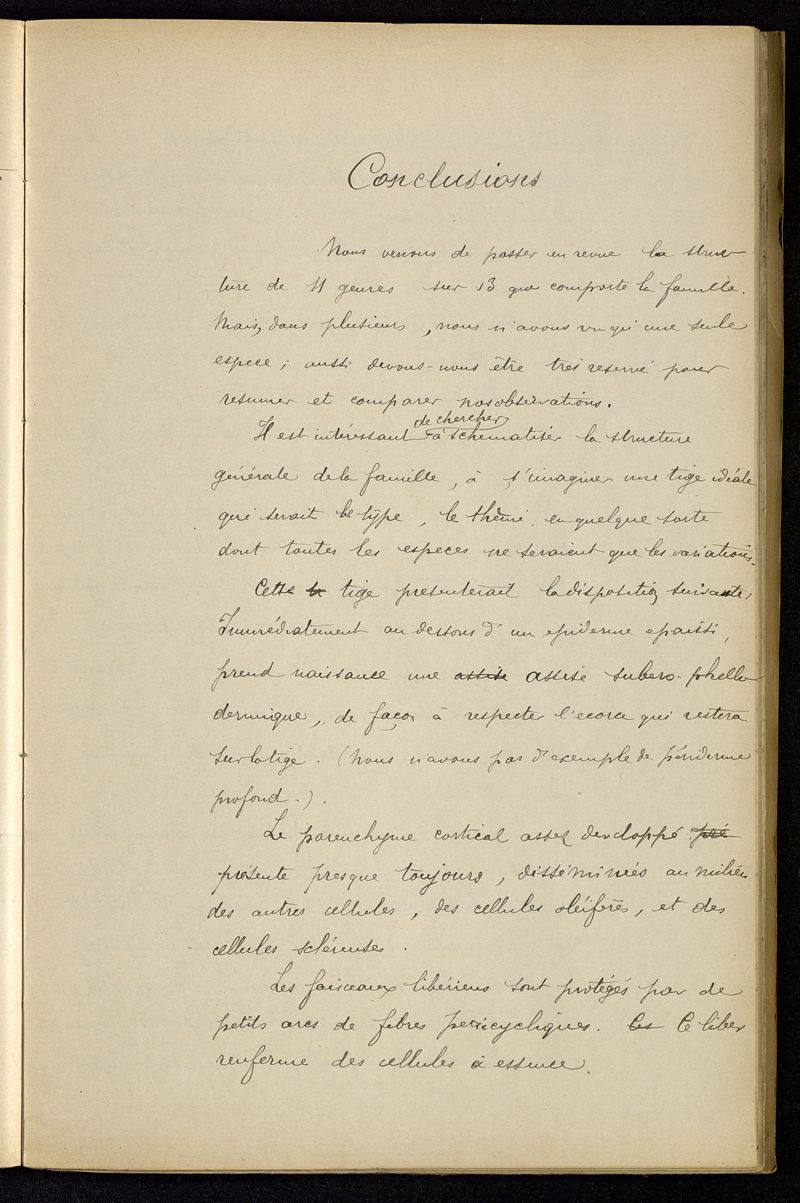 Conclusions
Nous venons de passer en revue la struc-
ture de 11 genres sur 13 que comporte la famille.
Mais, dans plusieurs, nous n'avons vu qu'une seule
espece ; aussi devons-nous être très reservé pour
resumer et comparer nos observations.
de chercher
Il est intéressant à schematiser la structure
générale de la famille, à s'imaginer une tige idéale
qui serait le type, le thème en quelque sorte
dont toutes les especes ne seraient que les variations.
Cette la tige presenterait la disposition suivante,
Immédiatement au dessous d'un epiderme epaissi,
prend naissance une assise assise subero-phello
dermique, de façon à respecter l'ecorce qui restera
sur la tige. (Nous n'avons pas d'exemple de périderme
profond.).
Le parenchyme cortical assez developpé pré
présente presque toujours, disséminées au milieu
des autres cellules, des cellules oléifères, et des
cellules scléreuses.
Les faisceaux libériens sont protégés par de
petits arcs de fibres pericycliques. Les Le liber
renferme des cellules à essence.